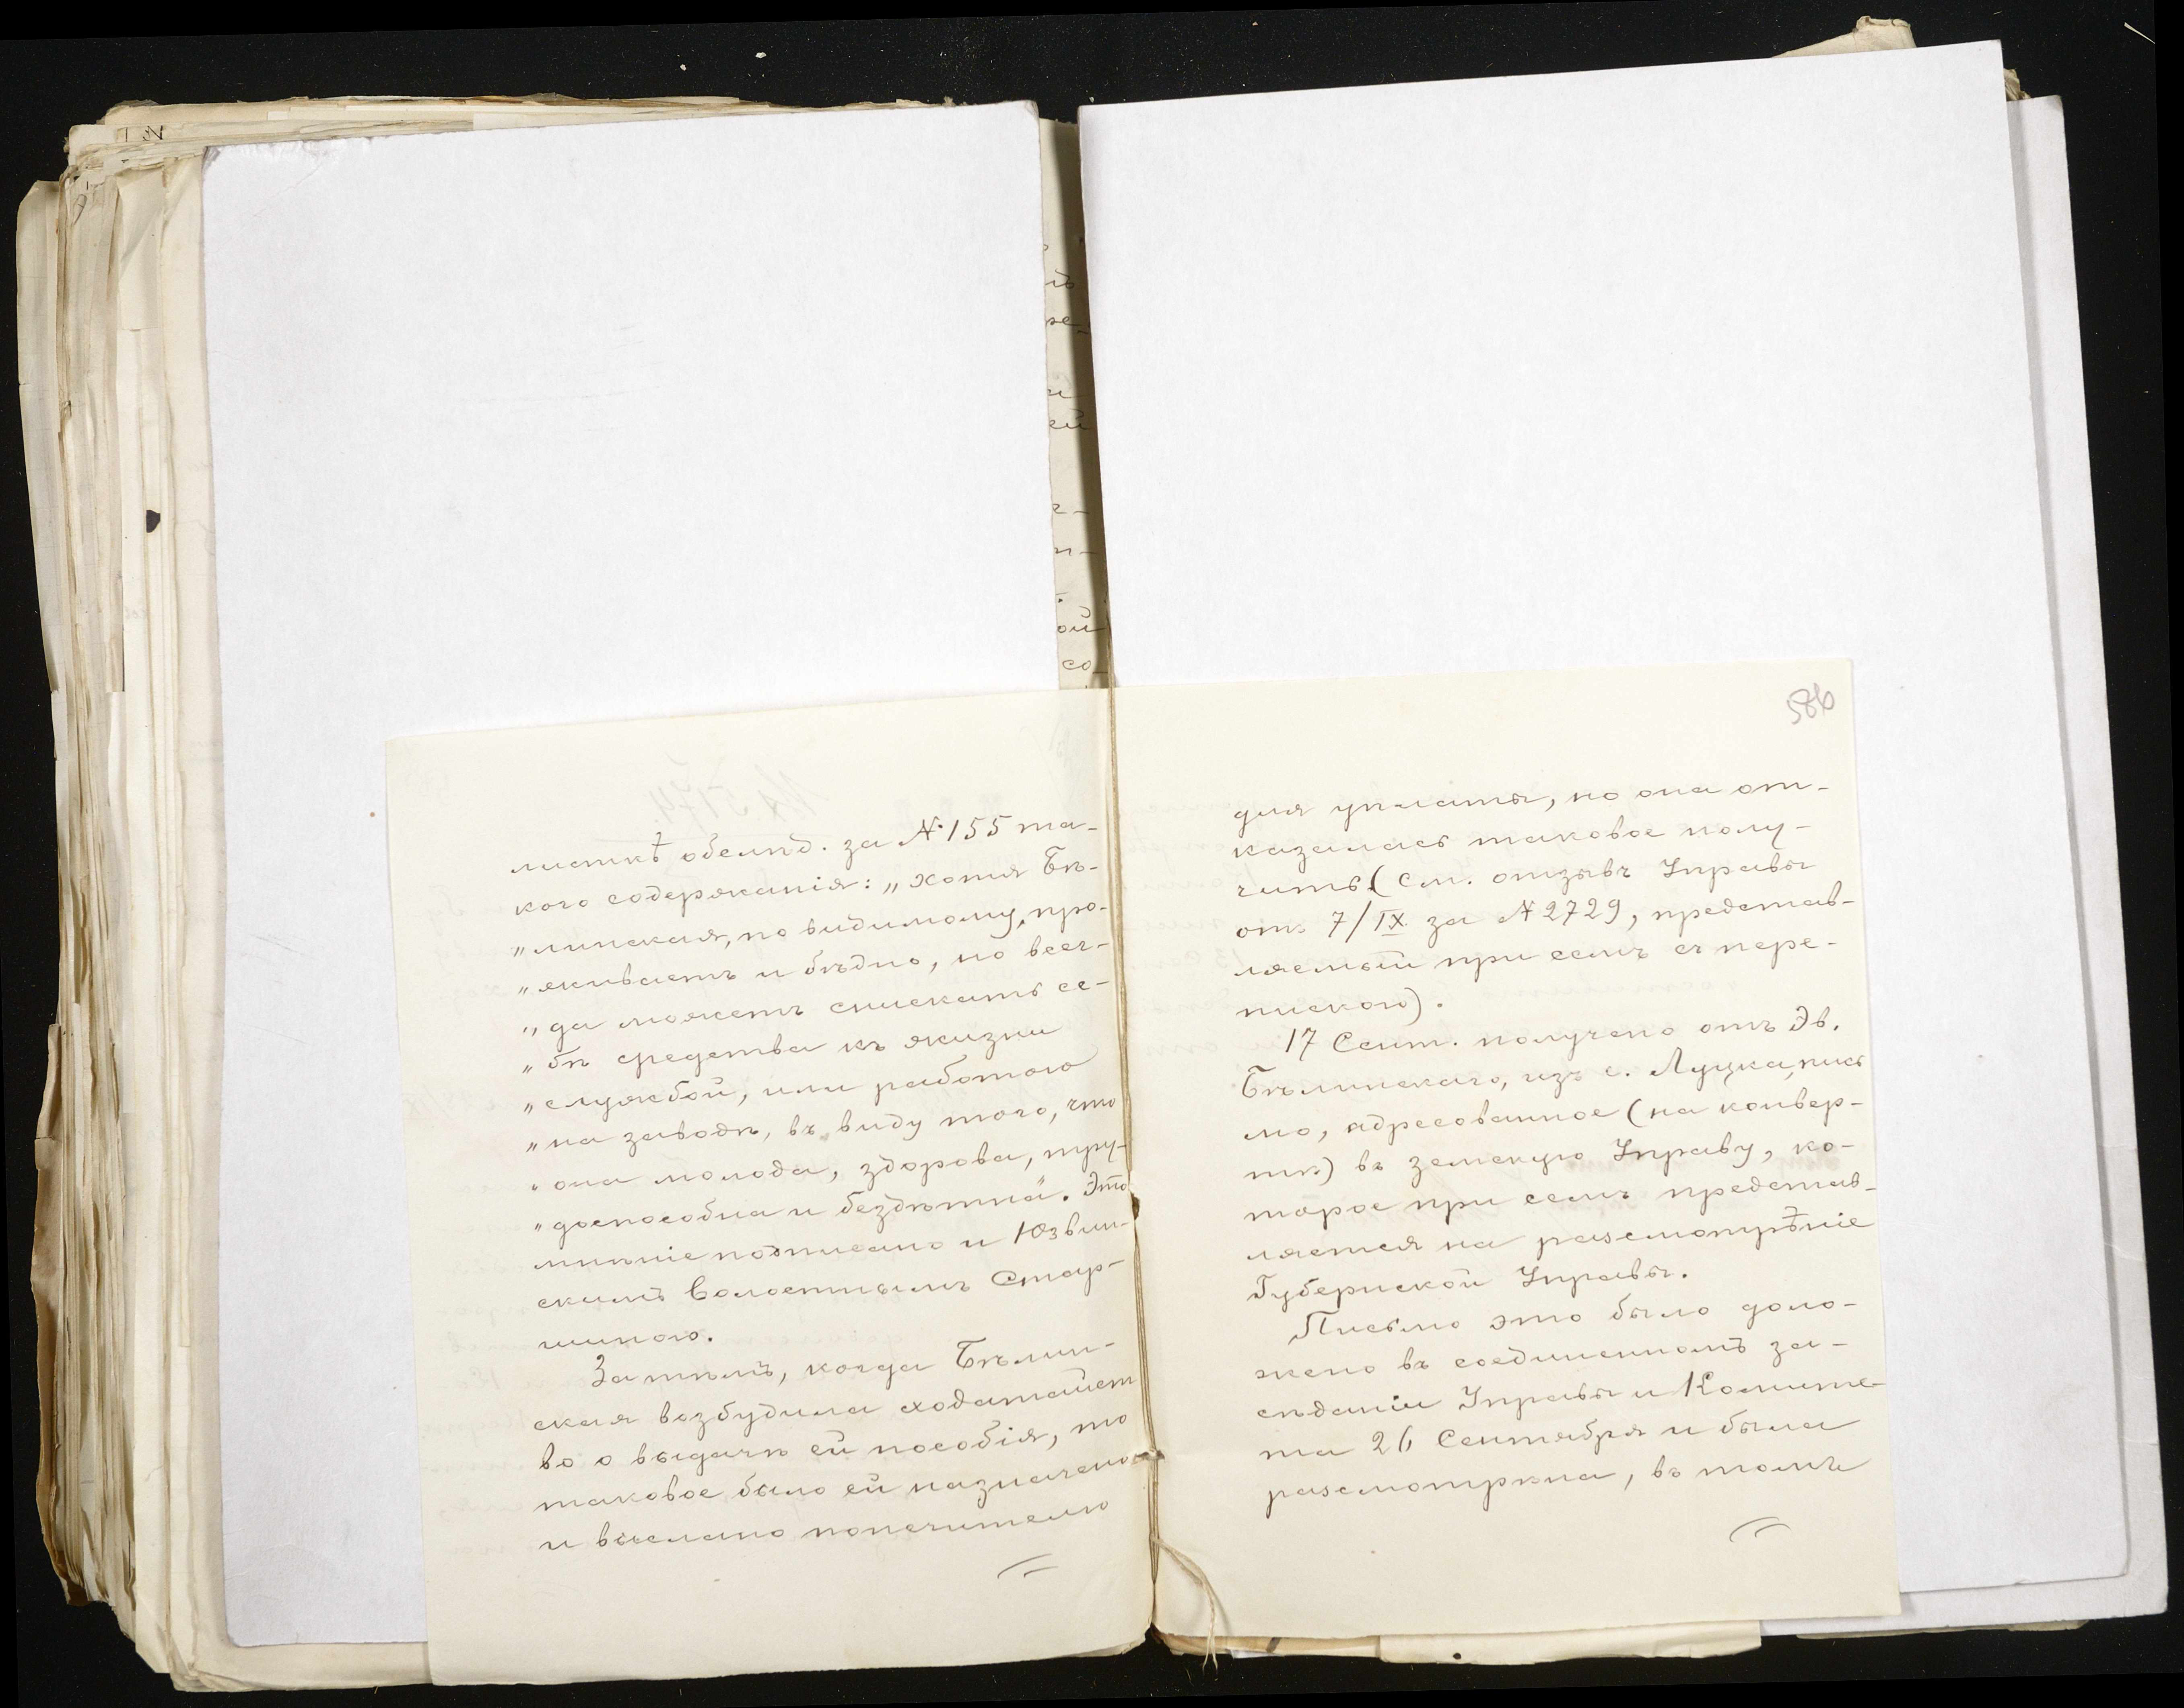 листкѣ обслѣд. за № 155 та-
кого содержанія: „хотя Бѣ-
„линская, по видимому, про-
„живаетъ и бѣдно, но всег-
„да можетъ снискать се-
„бѣ средства къ жизни
„службой, или работою
„на заводѣ, въ виду того, что
„она молода, здорова, тру-
„доспособна и бездѣтна“. Это
мнѣніе подписано и Юзвин-
скимъ Волостнымъ Стар-
шиною.
Затѣмъ, когда Бѣлин-
ская возбудила ходатайст
во о выдачѣ ей пособія, то
таковое было ей назначено
и выслано попечителю
586
для уплаты, но она от-
казалась таковое полу-
чить (см. отзывъ Управы
отъ 7/IX за № 2729, представ-
ляемый при семъ съ пере-
пискою).
17 Сент. получено отъ Эв.
Бѣлинскаго, изъ с. Луцка, пись
мо, адресованное (на конвер-
тѣ) въ земскую Управу, ко-
торое при семъ представ-
ляется на разсмотрѣніе
Губернской Управы.
Письмо это было доло-
жено въ соединенномъ за-
сѣданіи Управы и Комите-
та 26 Сентября и была
разсмотрѣна, въ томъ
ой
со
ей